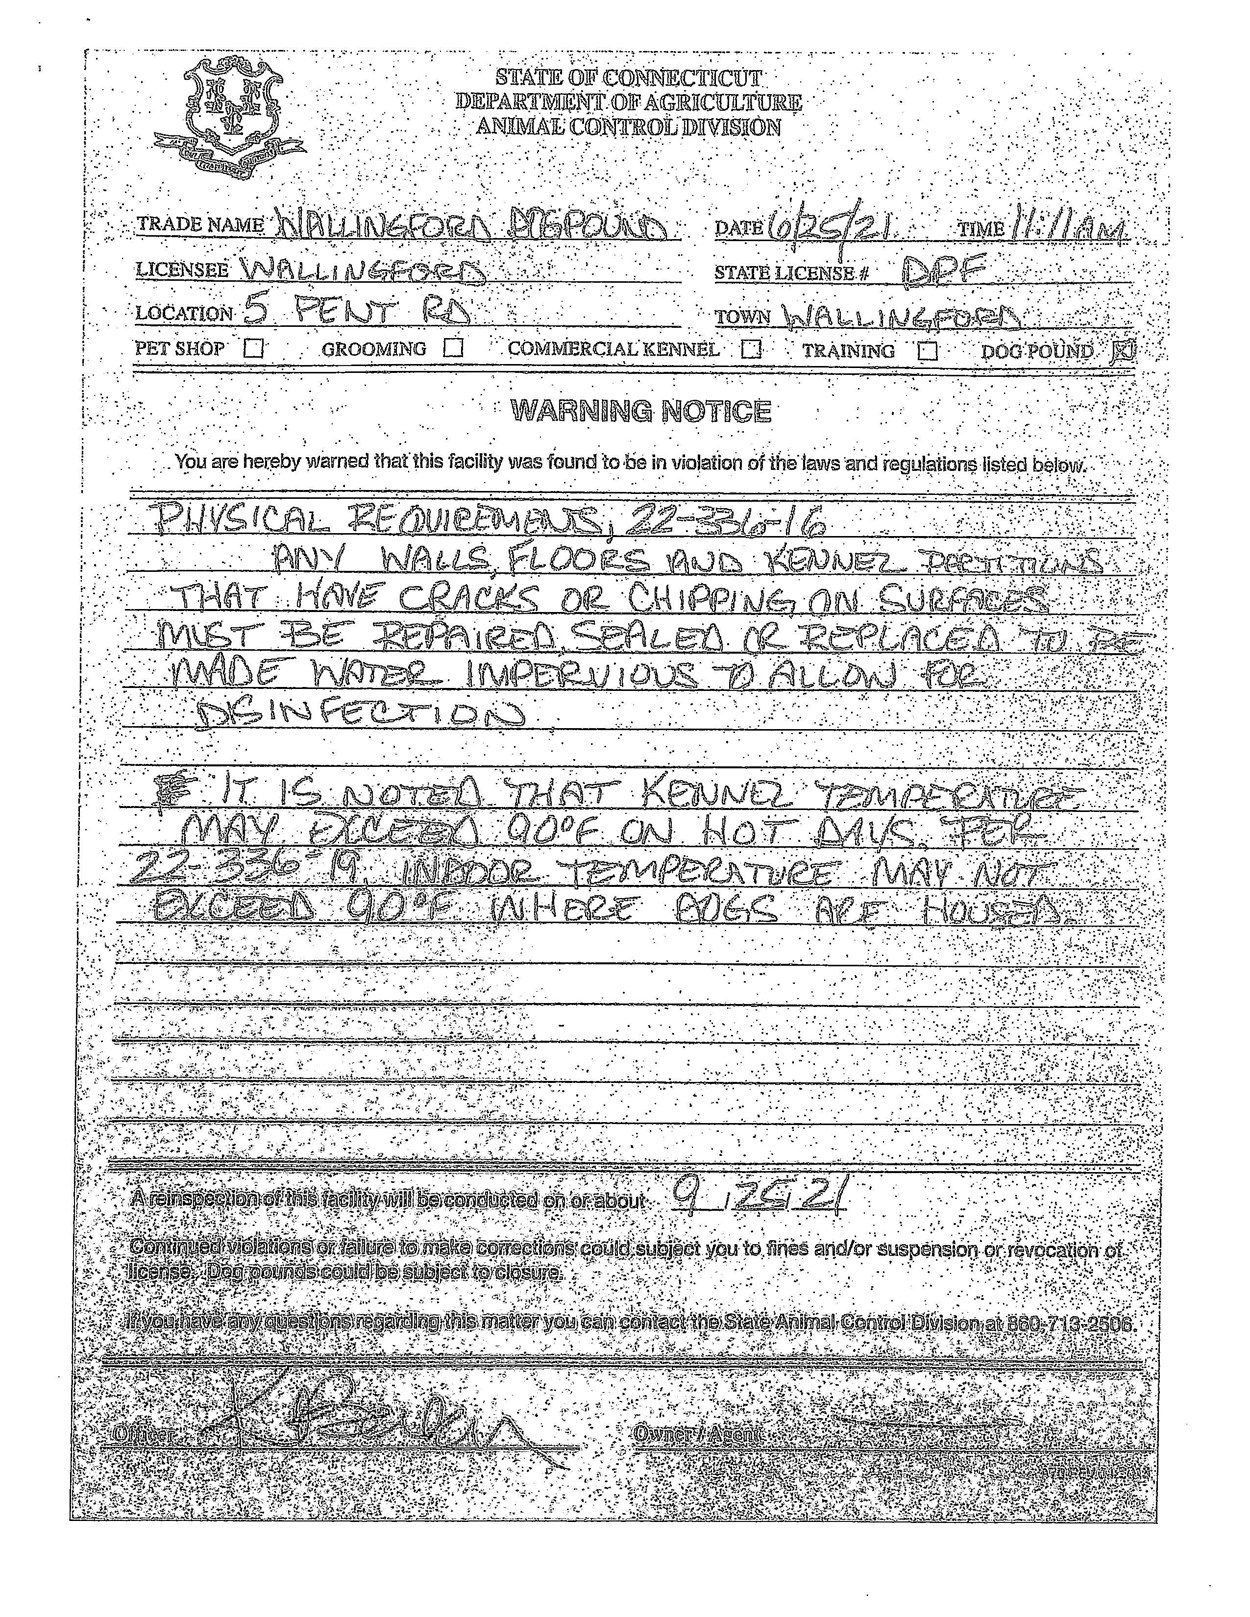 STATE OF CONNECTICUT
DEPARTMENT OF AGRICULTURE
ANIMAL CONTROL DIVISION
TRADE NAME WALLINGFORD DOGPOUND DATE 6/25/21 TIME 11:11AM
LICENSEE WALLINGFORD STATE LICENSE # DPF
LOCATION 5 PENT RD TOWN WALLINGFORD
PET SHOP ☐ GROOMING ☐ COMMERCIAL KENNEL ☐ TRAINING ☐ DOG POUND ☒
WARNING NOTICE
You are hereby warned that this facility was found to be in violation of the laws and regulations listed below.
PHYSICAL REQUIREMENTS, 22-336-16
ANY WALLS, FLOORS AND KENNEL PARTITIONS
THAT HAVE CRACKS OR CHIPPING ON SURFACES
MUST BE REPAIRED, SEALED OR REPLACED TO BE
MADE WATER IMPERVIOUS TO ALLOW FOR
DISINFECTION
IT IS NOTED THAT KENNEL TEMPERATURE
MAY EXCEED 90°F ON HOT DAYS. PER
22-336-19, INDOOR TEMPERATURE MAY NOT
EXCEED 90°F WHERE DOGS ARE HOUSED.
A reinspection of this facility will be conducted on or about 9/25/21
Continued violations or failure to make corrections could subject you to fines and/or suspension or revocation of
license. Dog pounds could be subject to closure.
If you have any questions regarding this matter you can contact the State Animal Control Division at 860-713-2506.
Officer Owner / Agent